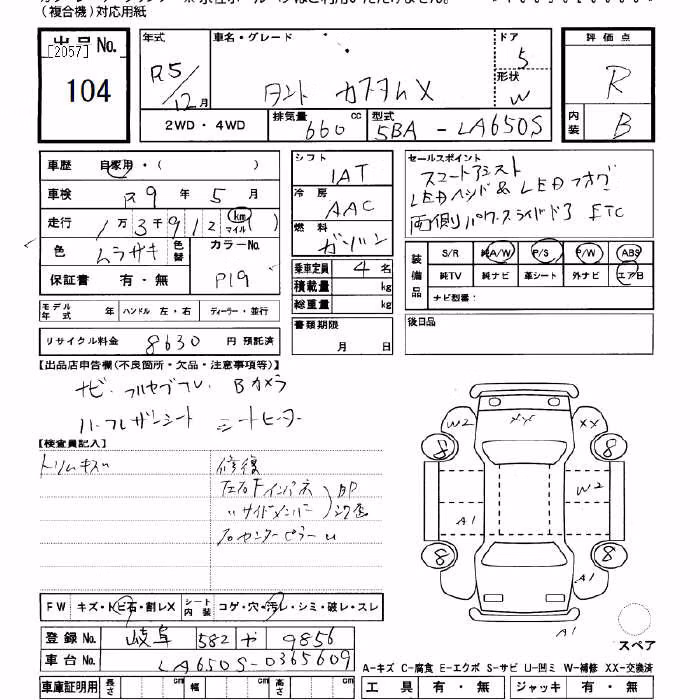 (複合機)対応用紙
出品No.
[2057]
104
年式 R5/12月
車名・グレード タント カスタムX
ドア 5
形状 W
2WD・4WD
排気量 660 cc
型式 5BA - LA650S
評価点 R
内装 B
車歴 自家用・( )
車検 R9年 5月
走行 1万3千912 km マイル ( )
色 ムラサキ 色替
カラーNo. P19
保証書 有・無
モデル年式 年 ハンドル 左・右 ディーラー・並行
リサイクル料金 8630 円 預託済
シフト IAT
冷房 AAC
燃料 ガソリン
乗車定員 4名
積載量 kg
総重量 kg
書類期限 月 日
セールスポイント
スマートアシスト
LEDヘッド & LEDフォグ
両側パワースライドドア ETC
装備品 S/R 純A/W P/S P/W ABS
純TV 純ナビ 革シート 外ナビ エアB
ナビ型番:
後日品
【出品店申告欄(不良箇所・欠品・注意事項等)】
ナビ・フルセグフル Bカメラ
ハーフレザーシート シートヒーター
【検査員記入】
トリムキズ
修復
左右Fインパネ BP
〃サイドメンバー
右センターピラー 〃
XX
W2
XX
8
8
W2
A1
8
8
A1
A1
スペア
FW キズ・トビ石・割レX シート内装 コゲ・穴・汚レ・シミ・破レ・スレ
登録No. 岐阜 582 や 9856
車台No. LA650S-0365609
A-キズ C-腐食 E-エクボ S-サビ U-凹ミ W-補修 XX-交換済
車庫証明用 長さ cm 幅 cm 高さ cm
工具 有・無 ジャッキ 有・無